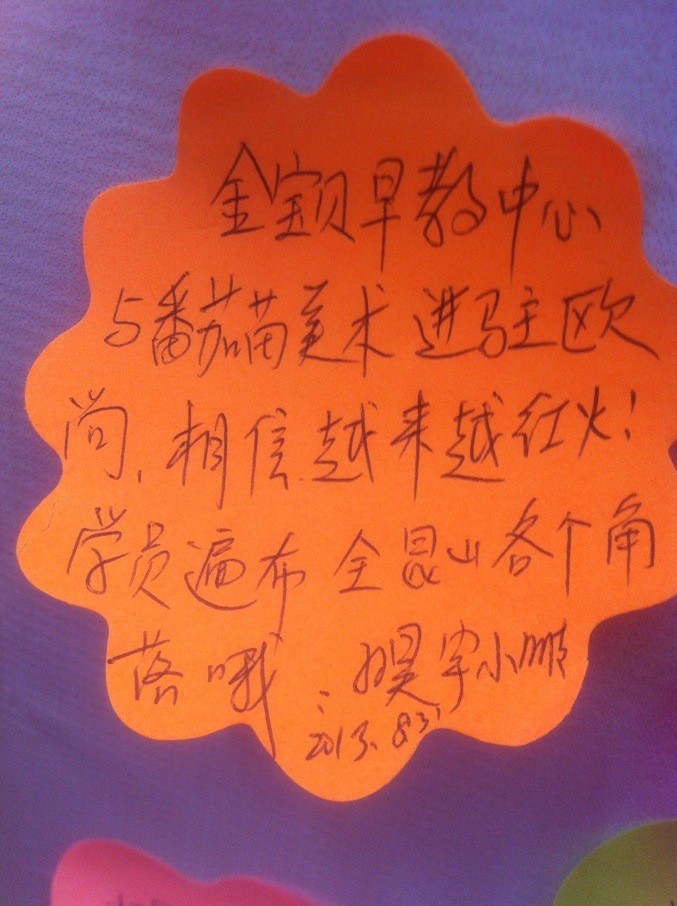 金宝贝早教中心
与番茄苗美术进驻欧
尚,相信越来越红火!
学员遍布全昆山各个角
落哦
昊宇小
2013.8.31